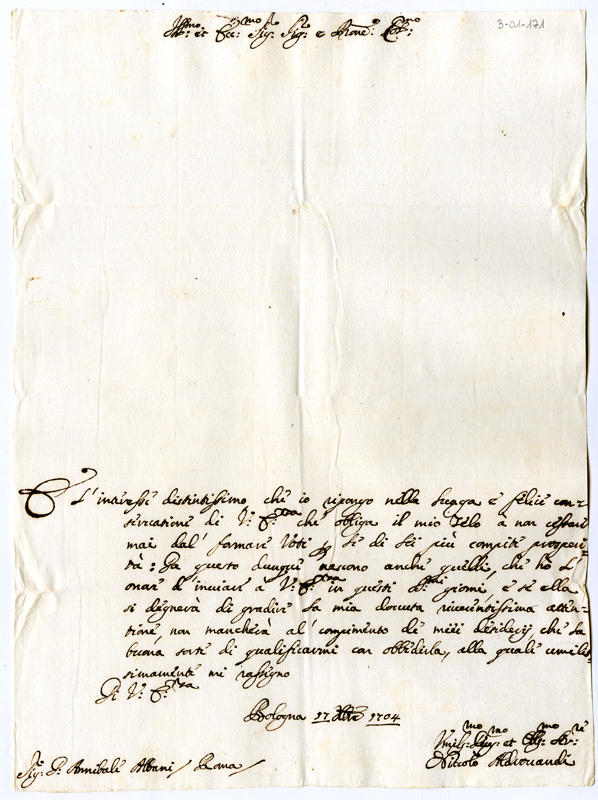 Ill:mo et Ecc:mo Sig:r Sig:r e Pron:e Col:mo
3-01-171
È l'interesse distintissimo che io ripongo nella lunga e felice con-
servatione di V: E:za che obliga il mio Zelo a non cessare
mai dal' formare Voti p le di Lei più compite prosperi-
tà: Da questo dunque nascono anche quelli, che hò l'
onore d' inviare à V: E:za in questi S:ti giorni, e se ella
si degnerà di gradire la mia dovuta riverentissima atten-
tione, non mancherà al' compimento de miei desiderij, che la
buona sorte di qualificarmi con obbidirla, alla quale umilis-
simamente mi rassegno
Di V: E:za
Bologna 17 Xbre 1704
Umil:mo Dev:mo et Obl:mo Ser:re
Niccolò Aldrovandi
Sig: D. Annibale Albani / Roma /